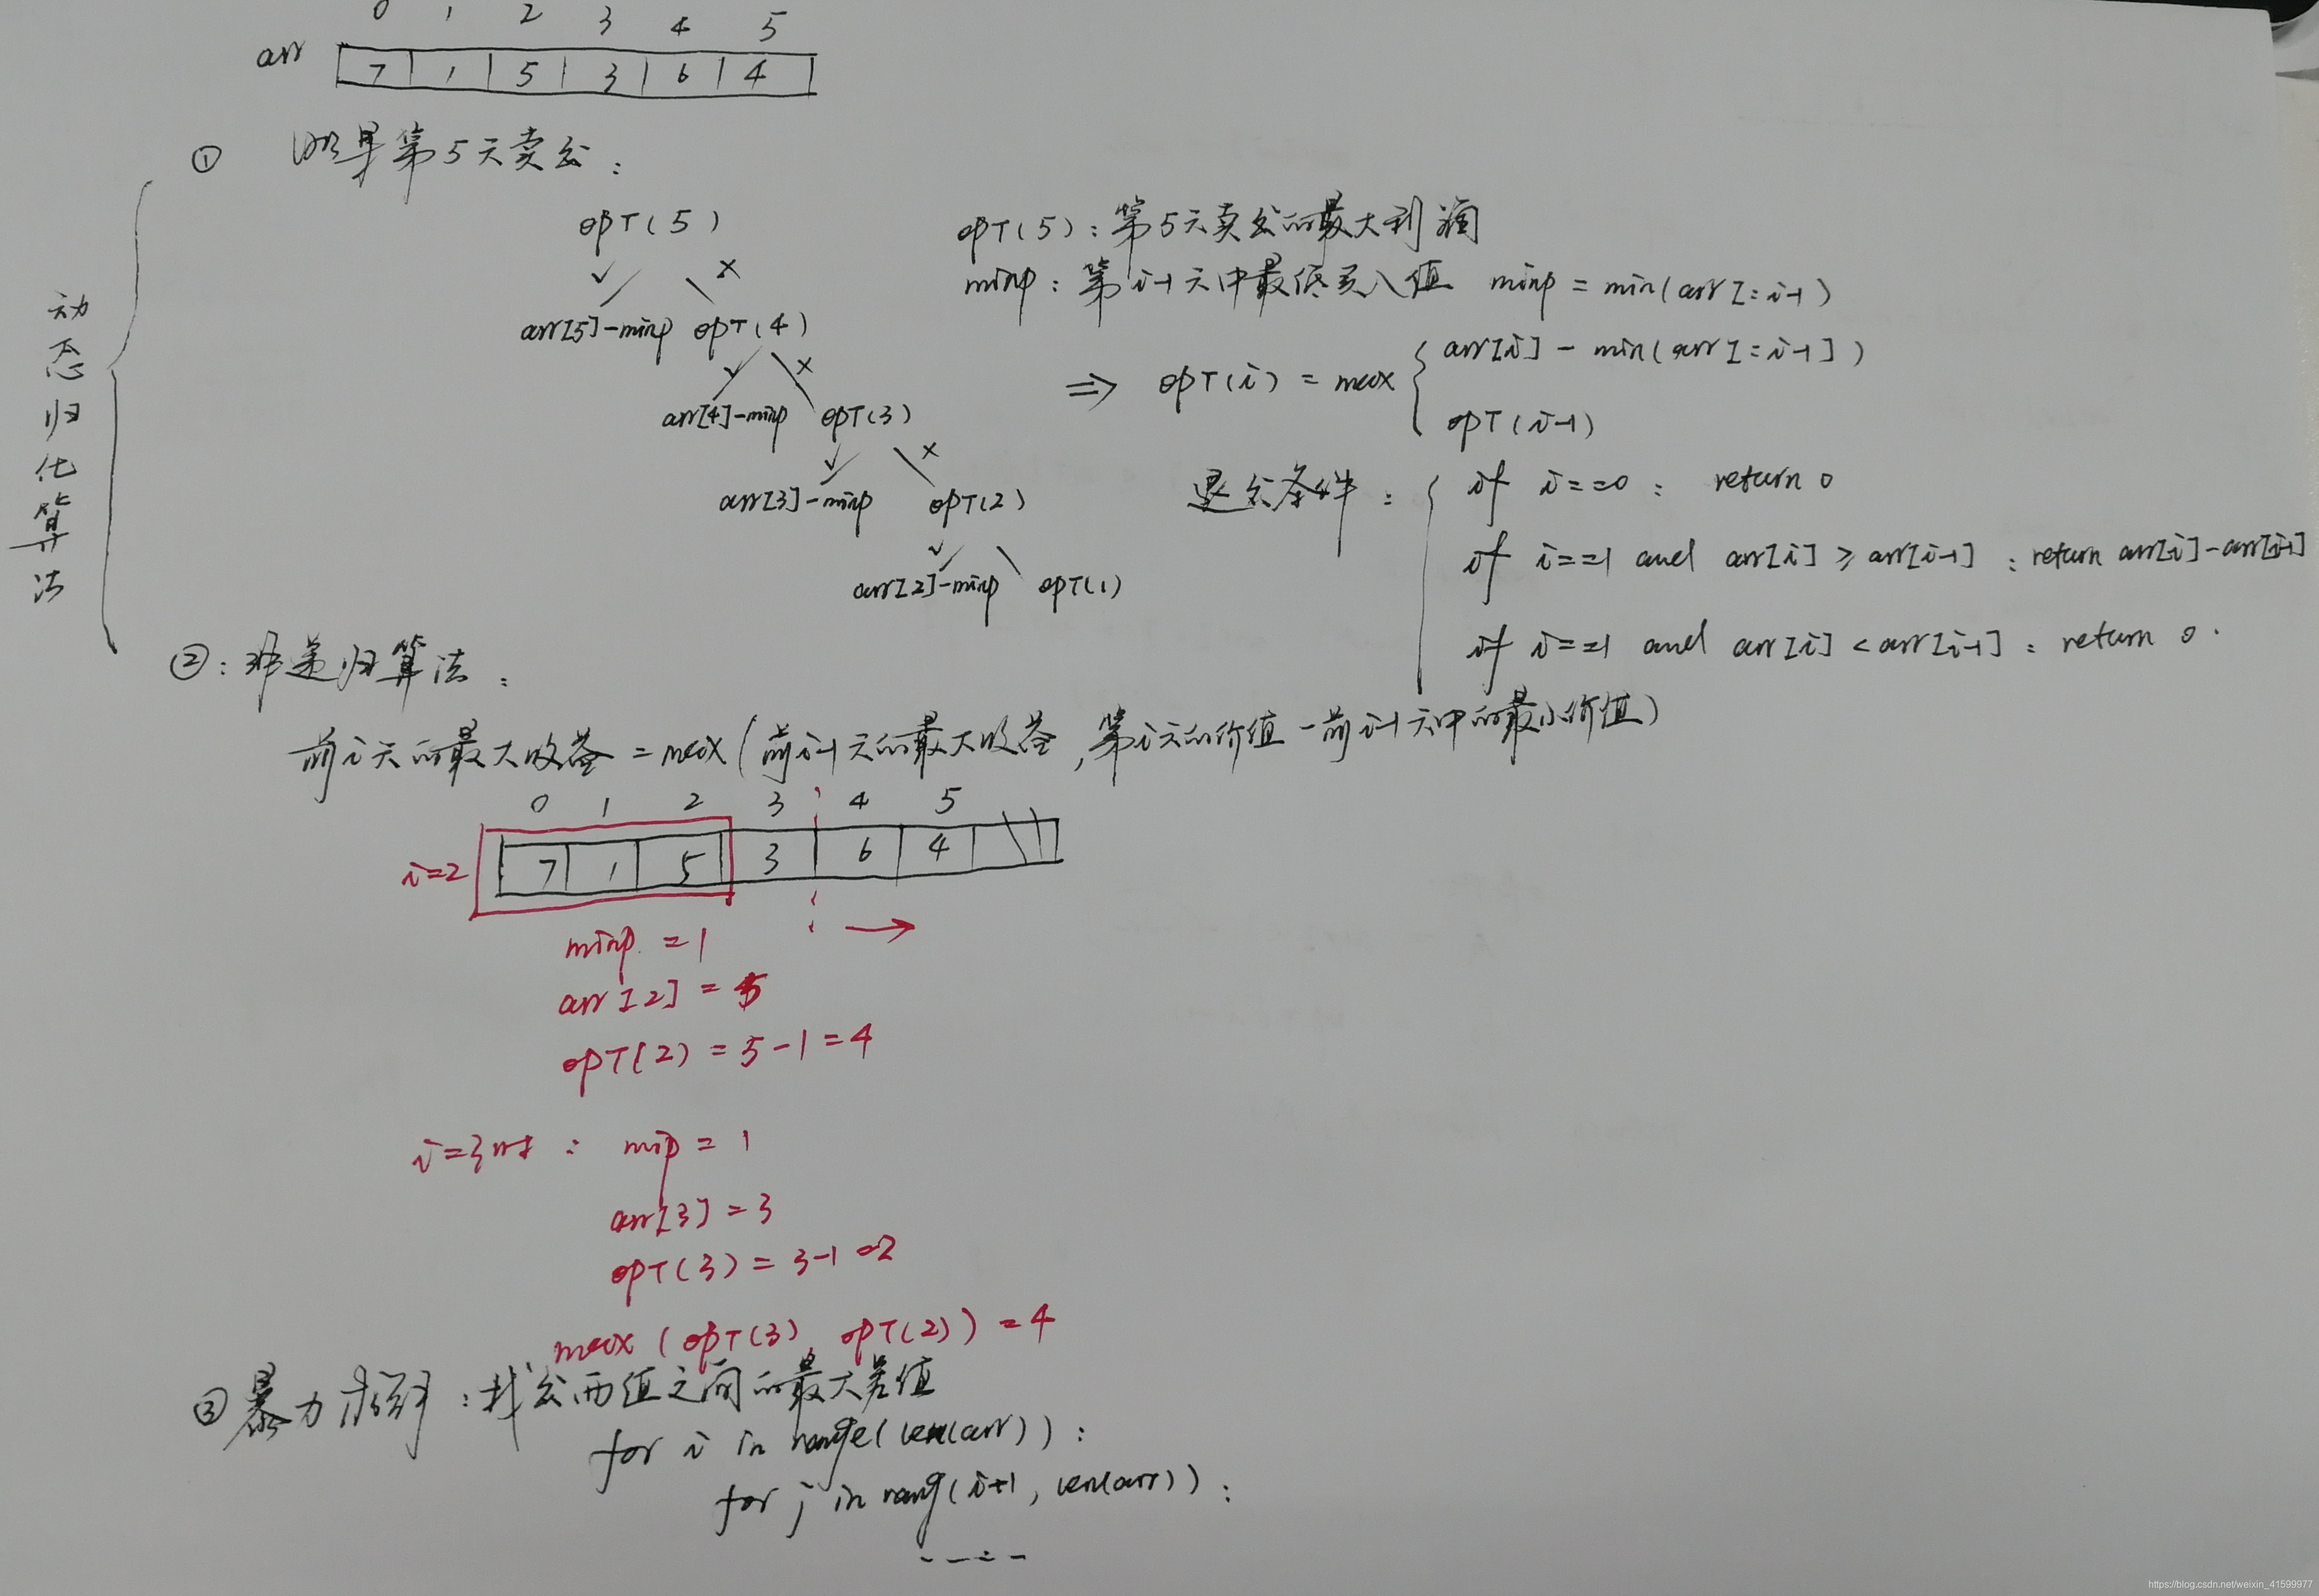 0 1 2 3 4 5
arr 7 1 5 3 6 4
① 如果第5天卖出：
动态归化算法
opT(5)
✓ ×
arr[5]-minp opT(4)
✓ ×
arr[4]-minp opT(3)
✓ ×
arr[3]-minp opT(2)
✓
arr[2]-minp opT(1)
opT(5)：第5天卖出的最大利润
minp：第i-1天中最低买入值 minp = min(arr[:i-1)
⇒ opT(i) = max { arr[i] - min(arr[:i-1])
opT(i-1)
退出条件： { if i==0： return 0
if i==1 and arr[i] ≥ arr[i-1] ：return arr[i]-arr[i-1]
if i==1 and arr[i] < arr[i-1]：return 0.
②：非递归算法：
前i天的最大收益 = max(前i-1天的最大收益, 第i天的价值-前i-1天中的最小价值)
0 1 2 3 4 5
i=2 7 1 5 3 6 4
→
minp. = 1
arr[2] = 5
opT(2) = 5-1 = 4
i=3时： mip = 1
arr[3] = 3
opT(3) = 3-1 =2
max (opT(3), opT(2)) = 4
③暴力求解：找出两值之间的最大差值
for i in range(len(arr))：
for j in rang(i+1, len(arr))：
https://blog.csdn.net/weixin_41599977